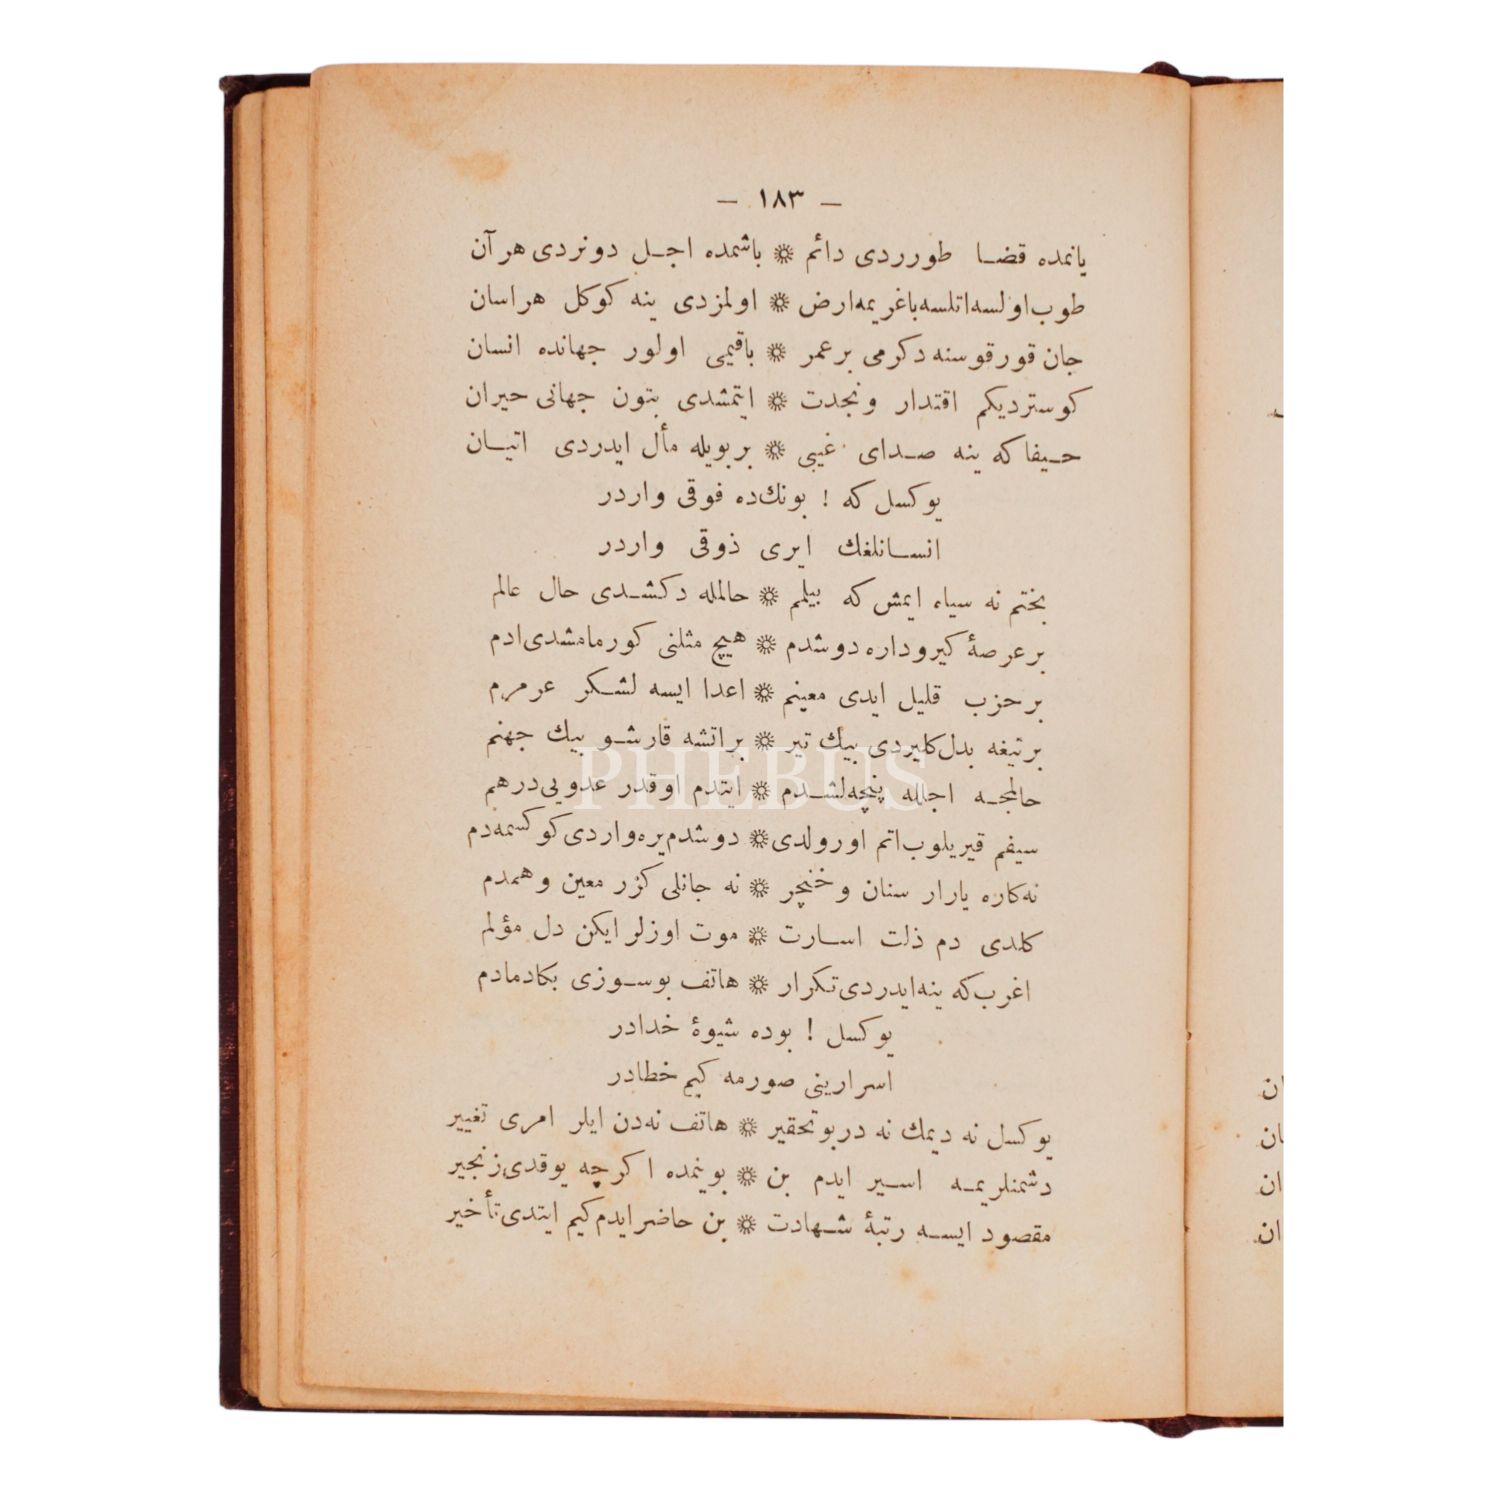 — ١٨٣ —
يانمده قضا طورردى دائم ❊ باشمده اجل دونردى هر آن
طوب اولسه اتلسه باغريمه ارض ❊ اولمزدى ينه كوكل هراسان
جان قورقوسنه دكرمى بر عمر ❊ باقيمى اولور جهانده انسان
كوسترديكم اقتدار و نجدت ❊ ايتمشدى بتون جهانى حيران
حيفا كه ينه صداى غيبى ❊ بر بويله مأل ايدردى اتيان
يوكسل كه ! بونك ده فوقى واردر
انسانلغك ايرى ذوقى واردر
بختم نه سياه ايمش كه بيلمم ❊ حالمله دكشدى حال عالم
بر عرصهٔ كيروداره دوشدم ❊ هيچ مثلنى كورمامشدى ادم
بر حزب قليل ايدى معينم ❊ اعدا ايسه لشكر عرمرم
بر تيغه بدل كليردى بيك تير ❊ بر اتشه قارشو بيك جهنم
حالمجه اجلله پنچه لشدم ❊ ايتدم اوقدر عدويى درهم
سيفم قيريلوب اتم اورولدى ❊ دوشدم يره واردى كوكسمه دم
نه كاره يارار سنان و خنچر ❊ نه جانلى كزر معين و همدم
كلدى دم ذلت اسارت ❊ موت اوزلر ايكن دل مؤلم
اغرب كه ينه ايدردى تكرار ❊ هاتف بو سوزى بكا دمادم
يوكسل ! بوده شيوهٔ خدادر
اسرارينى صورمه كيم خطادر
يوكسل نه ديمك نه در بو تحقير ❊ هاتف نه دن ايلر امرى تغيير
دشمنلريمه اسير ايدم بن ❊ بوينمده اكرچه يوقدى زنجير
مقصود ايسه رتبهٔ شهادت ❊ بن حاضر ايدم كيم ايتدى تأخير
ان
ان
ان
PHEBUS